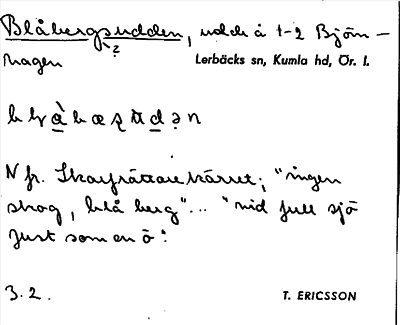 Blåbergsudden, udde å 1-2 Björn-
hagen
Lerbäcks sn, Kumla hd, Ör. l.
N fr. Skarprättarekärret; "ingen
skog, blå berg"... "vid full sjö
just som en ö".
3.2.
T. ERICSSON